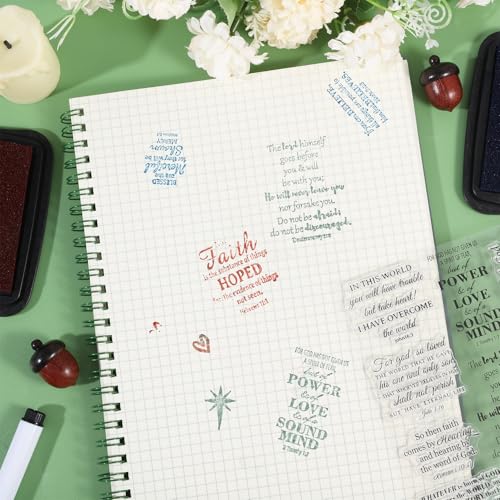 If you can BELIEVE,
all things are possible to
him that BELIEVES.
BLESSED
are the
Merciful
for they will be
Shown
MERCY
The lord himself
goes before
you & will
be with you;
He will never leave you
nor forsake you.
Do not be afraid;
do not be discouraged.
Deuteronomy 31:8
Faith
is the substance of things
HOPED
for, the evidence of things
not seen.
Hebrews 11:1
FOR GOD HAS NOT GIVEN US
A SPIRIT OF FEAR,
but of
POWER
& of
LOVE
& of a
SOUND
MIND
2 Timothy 1:7
IN THIS WORLD
you will have trouble
but take heart!
I HAVE OVERCOME
the world.
JOHN 16:33
For god so loved
THE WORLD THAT HE GAVE
his one and only son
THAT WHOEVER BELIEVES IN HIM
shall not perish
BUT HAVE ETERNAL LIFE
John 3:16
So then faith
comes by Hearing
and hearing by
the word of God.
FOR GOD HAS NOT GIVEN US
A SPIRIT OF FEAR,
but of
POWER
& of
LOVE
& of a
SOUND
MIND
WHATEVER